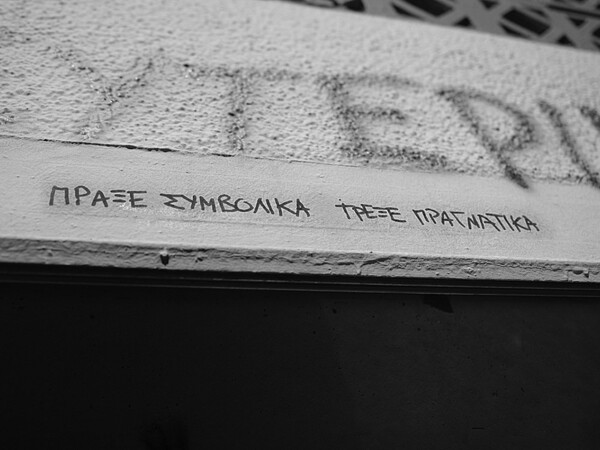 ΥΤΕΡΙ
ΠΡΑΞΕ ΣΥΜΒΟΛΙΚΑ ΤΡΕΞΕ ΠΡΑΓΜΑΤΙΚΑ